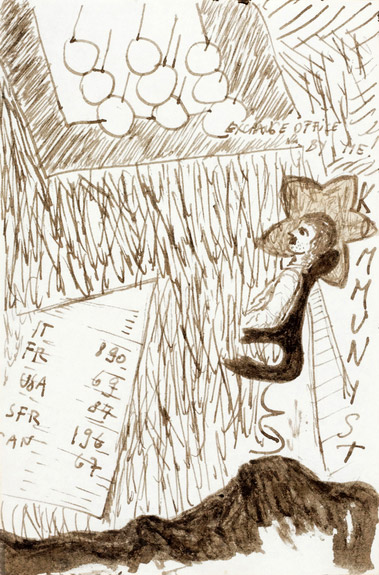 EXCANGE OFFICE
BY THE
KOMMUNYST
IT
FR 890
USA 69
SFR 87
AN 196
67